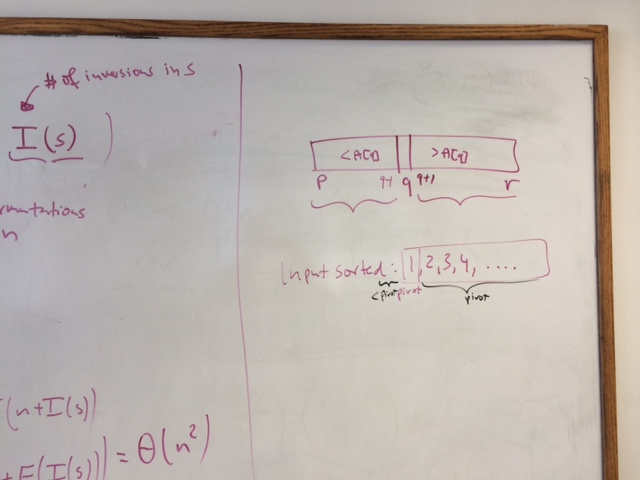 # of inversions in s
I(s) )
mutations
n
(n+I(s))
+E(I(s))] = Θ(n²)
<A[q] >A[q]
p q-1 q q+1 r
Input sorted: 1, 2, 3, 4, ....
<pivot pivot pivot